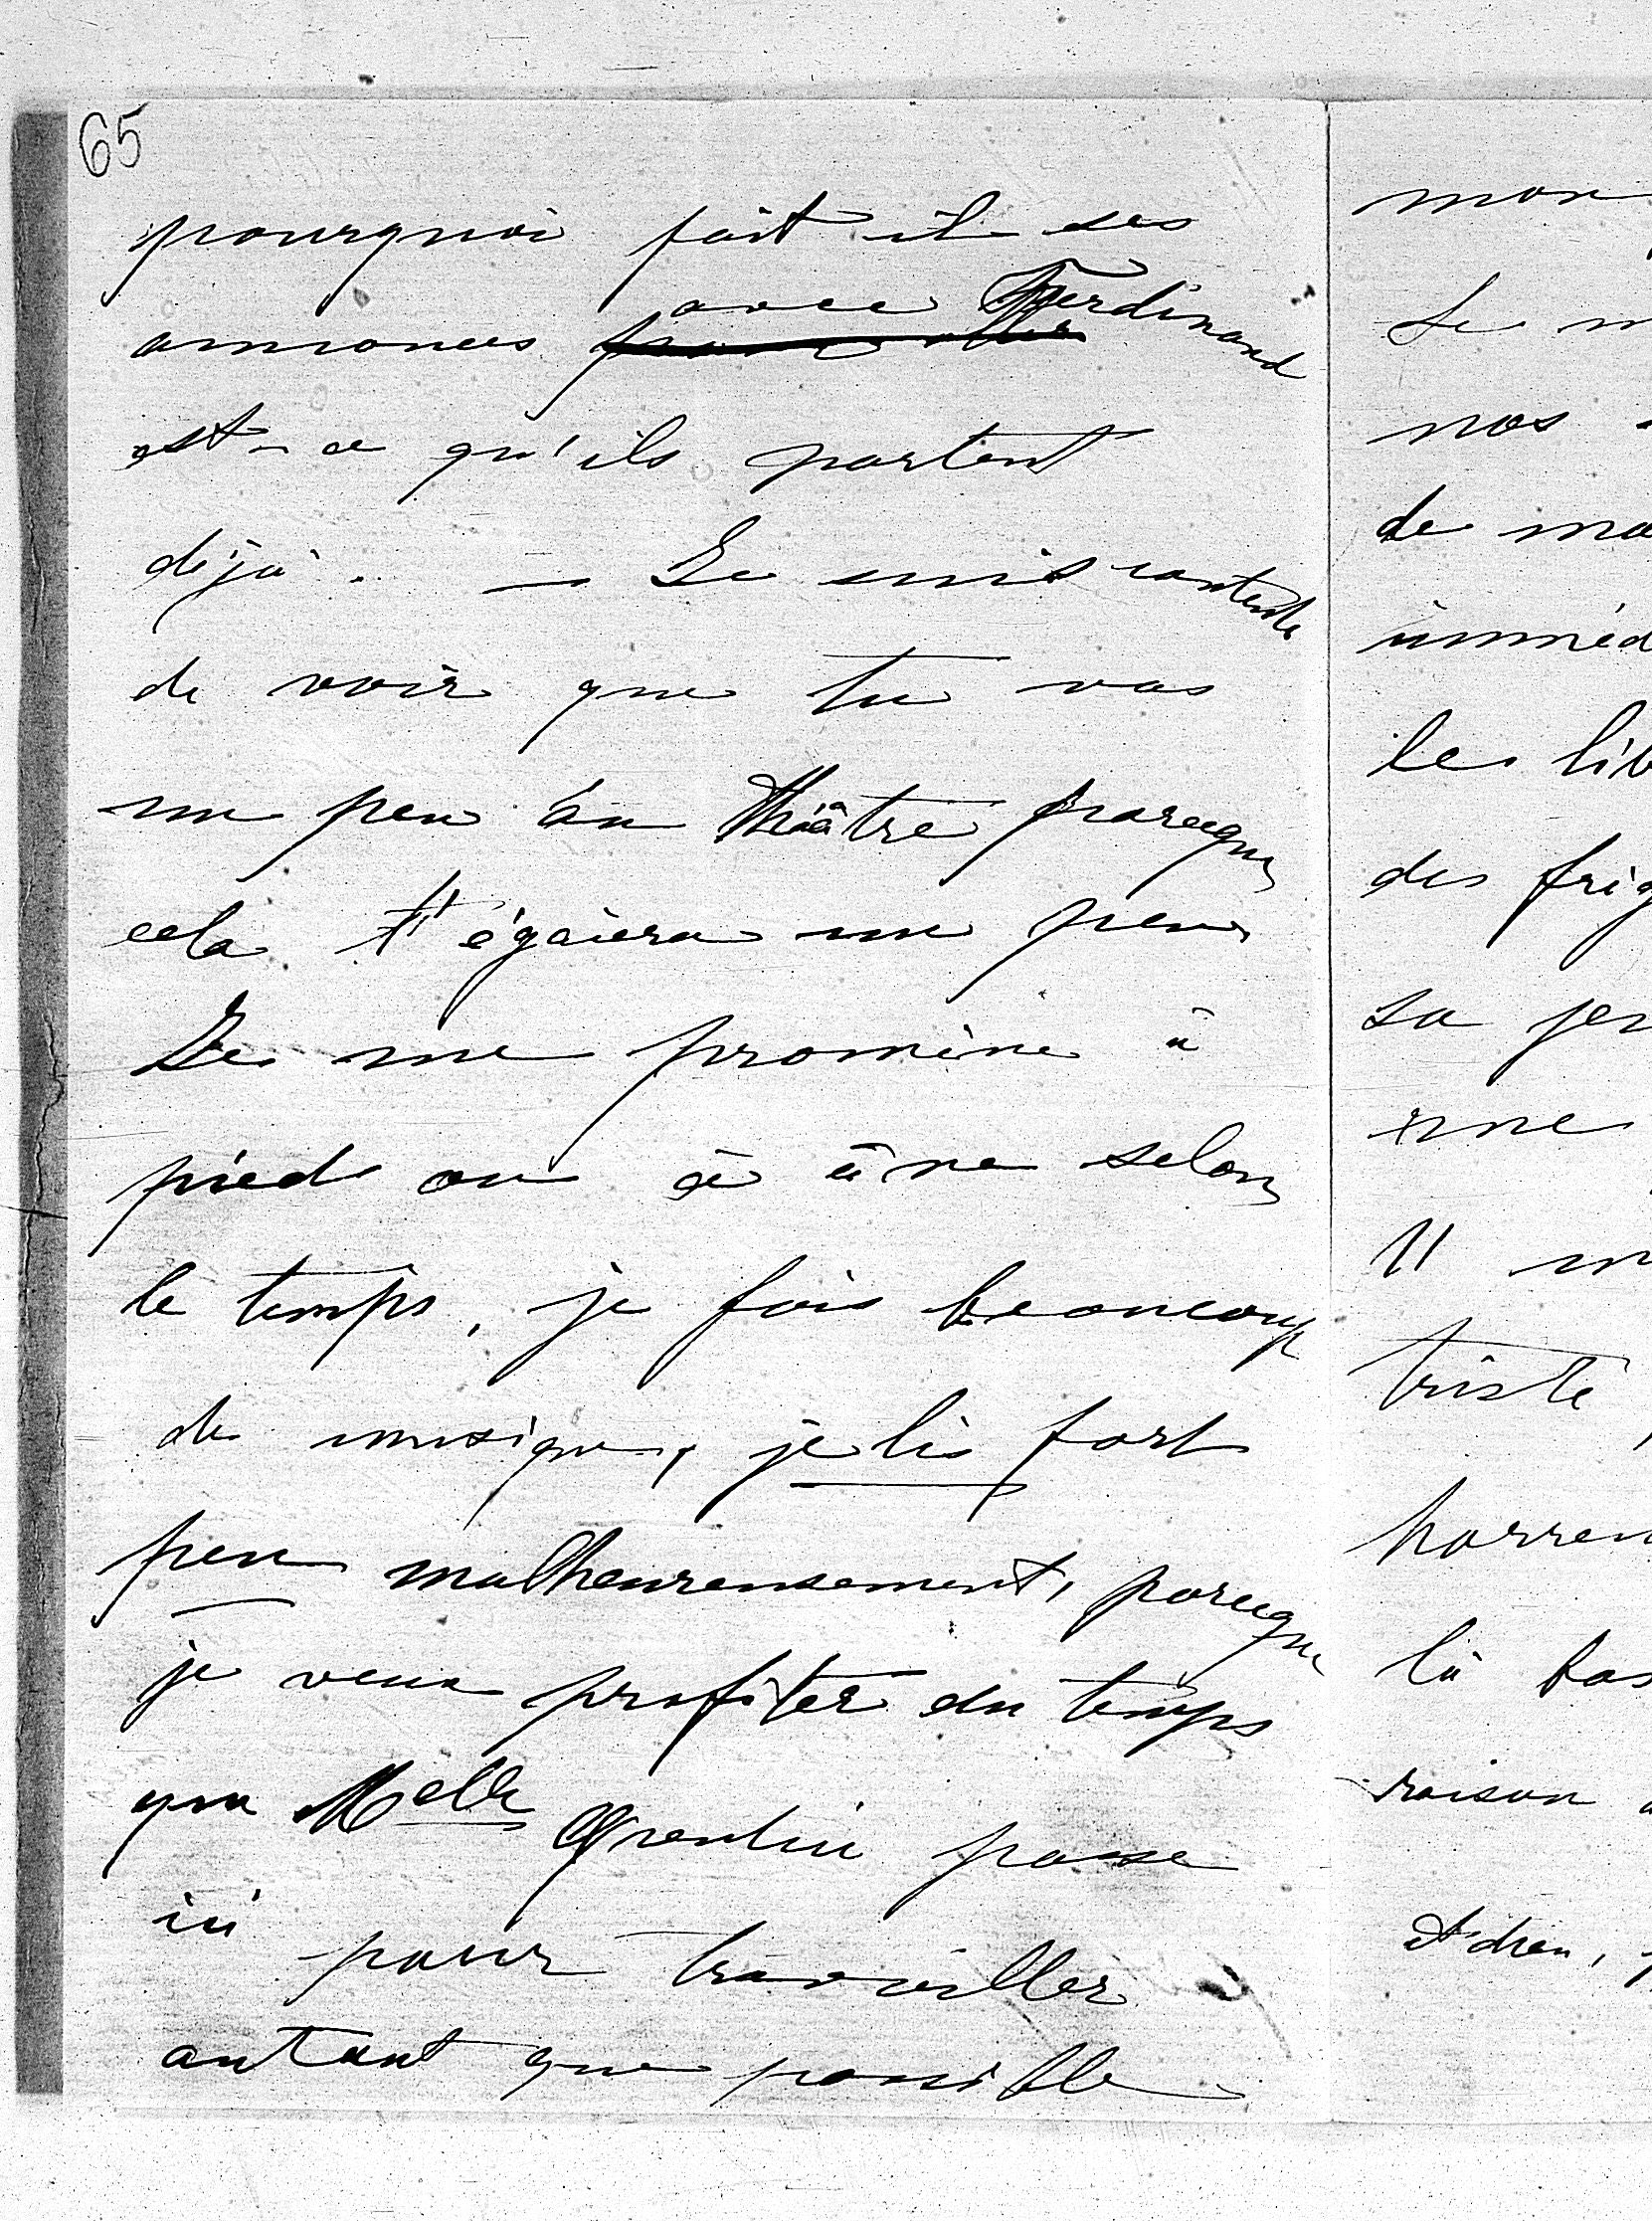 65
pourquoi fait-il ses
avec Ferdinand
annonces
est-ce qu'ils partent
déjà. — Je suis contente
de voir que tu vas
un peu au théâtre parceque
cela t'égaiera un peu
Je me promène à
pied ou à âne selon
le temps, je fais beaucoup
de musique, je lis fort
peu malheureusement, parceque
je veux profiter du temps
que Melle passe
ici pour travailler
autant que possible
mon
Je m
nos
de ma
imméd
les lib
des frig
sa jeu
nne
11 m
triste,
horren
là bas
raison
Adieu,